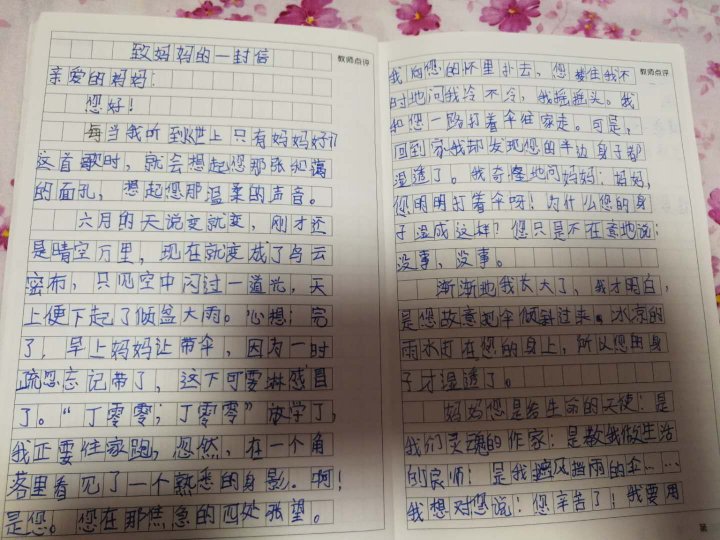 致妈妈的一封信
教师点评
亲爱的妈妈:
您好!
每当我听到《世上只有妈妈好》
这首歌时,就会想起您那张和蔼
的面孔,想起您那温柔的声音。
六月的天说变就变,刚才还
是晴空万里,现在就变成了乌云
密布,只见空中闪过一道光,天
上便下起了倾盆大雨。心想:完
了,早上妈妈让带伞,因为一时
疏忽忘记带了,这下可要淋感冒
了。“丁零零;丁零零”放学了,
我正要往家跑,忽然,在一个角
落里看见了一个熟悉的身影。啊!
是您。您在那焦急的四处张望。
教师点评
我向您的怀里扑去,您搂住我不
时地问我冷不冷,我摇摇头。我
和您一路打着伞往家走。可是,
回到家我却发现您的半边身子都
湿透了。我奇怪地问妈妈:妈妈,
您明明打着伞呀!为什么您的身
子湿成这样?您只是不在意地说:
没事,没事。
渐渐地我长大了,我才明白,
是您故意把伞倾斜过来,冰凉的
雨水打在您的身上,所以您的身
子才湿透了。
妈妈您是给生命的天使;是
我们灵魂的作家;是教我做生活
的良师;是我挡风挡雨的伞……
我想对您说:您辛苦了!我要用
第